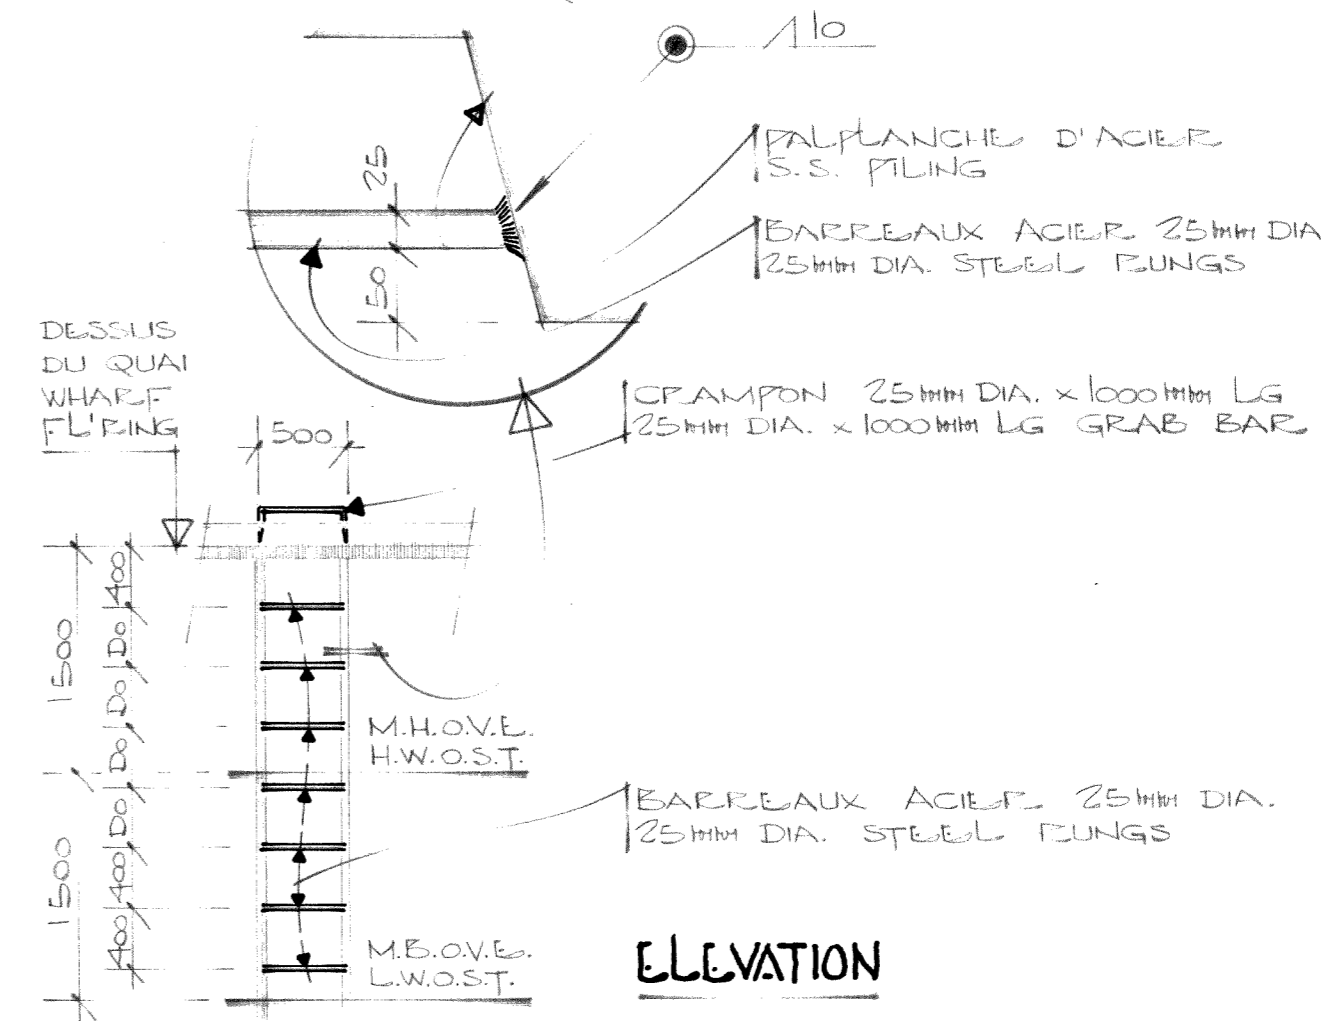 1 10
PALPLANCHE D'ACIER
S.S. PILING
25
BARREAUX ACIER 25mm DIA
25mm DIA. STEEL RUNGS
50
DESSUS
DU QUAI
WHARF
FL'RING
CRAMPON 25mm DIA. x 1000mm LG
25mm DIA. x 1000mm LG GRAB BAR
500
400
Do
1500
Do
Do
M.H.O.V.E.
H.W.O.S.T.
Do
BARREAUX ACIER 25mm DIA.
25mm DIA. STEEL RUNGS
1500
400
400
M.B.O.V.E.
L.W.O.S.T.
ELEVATION